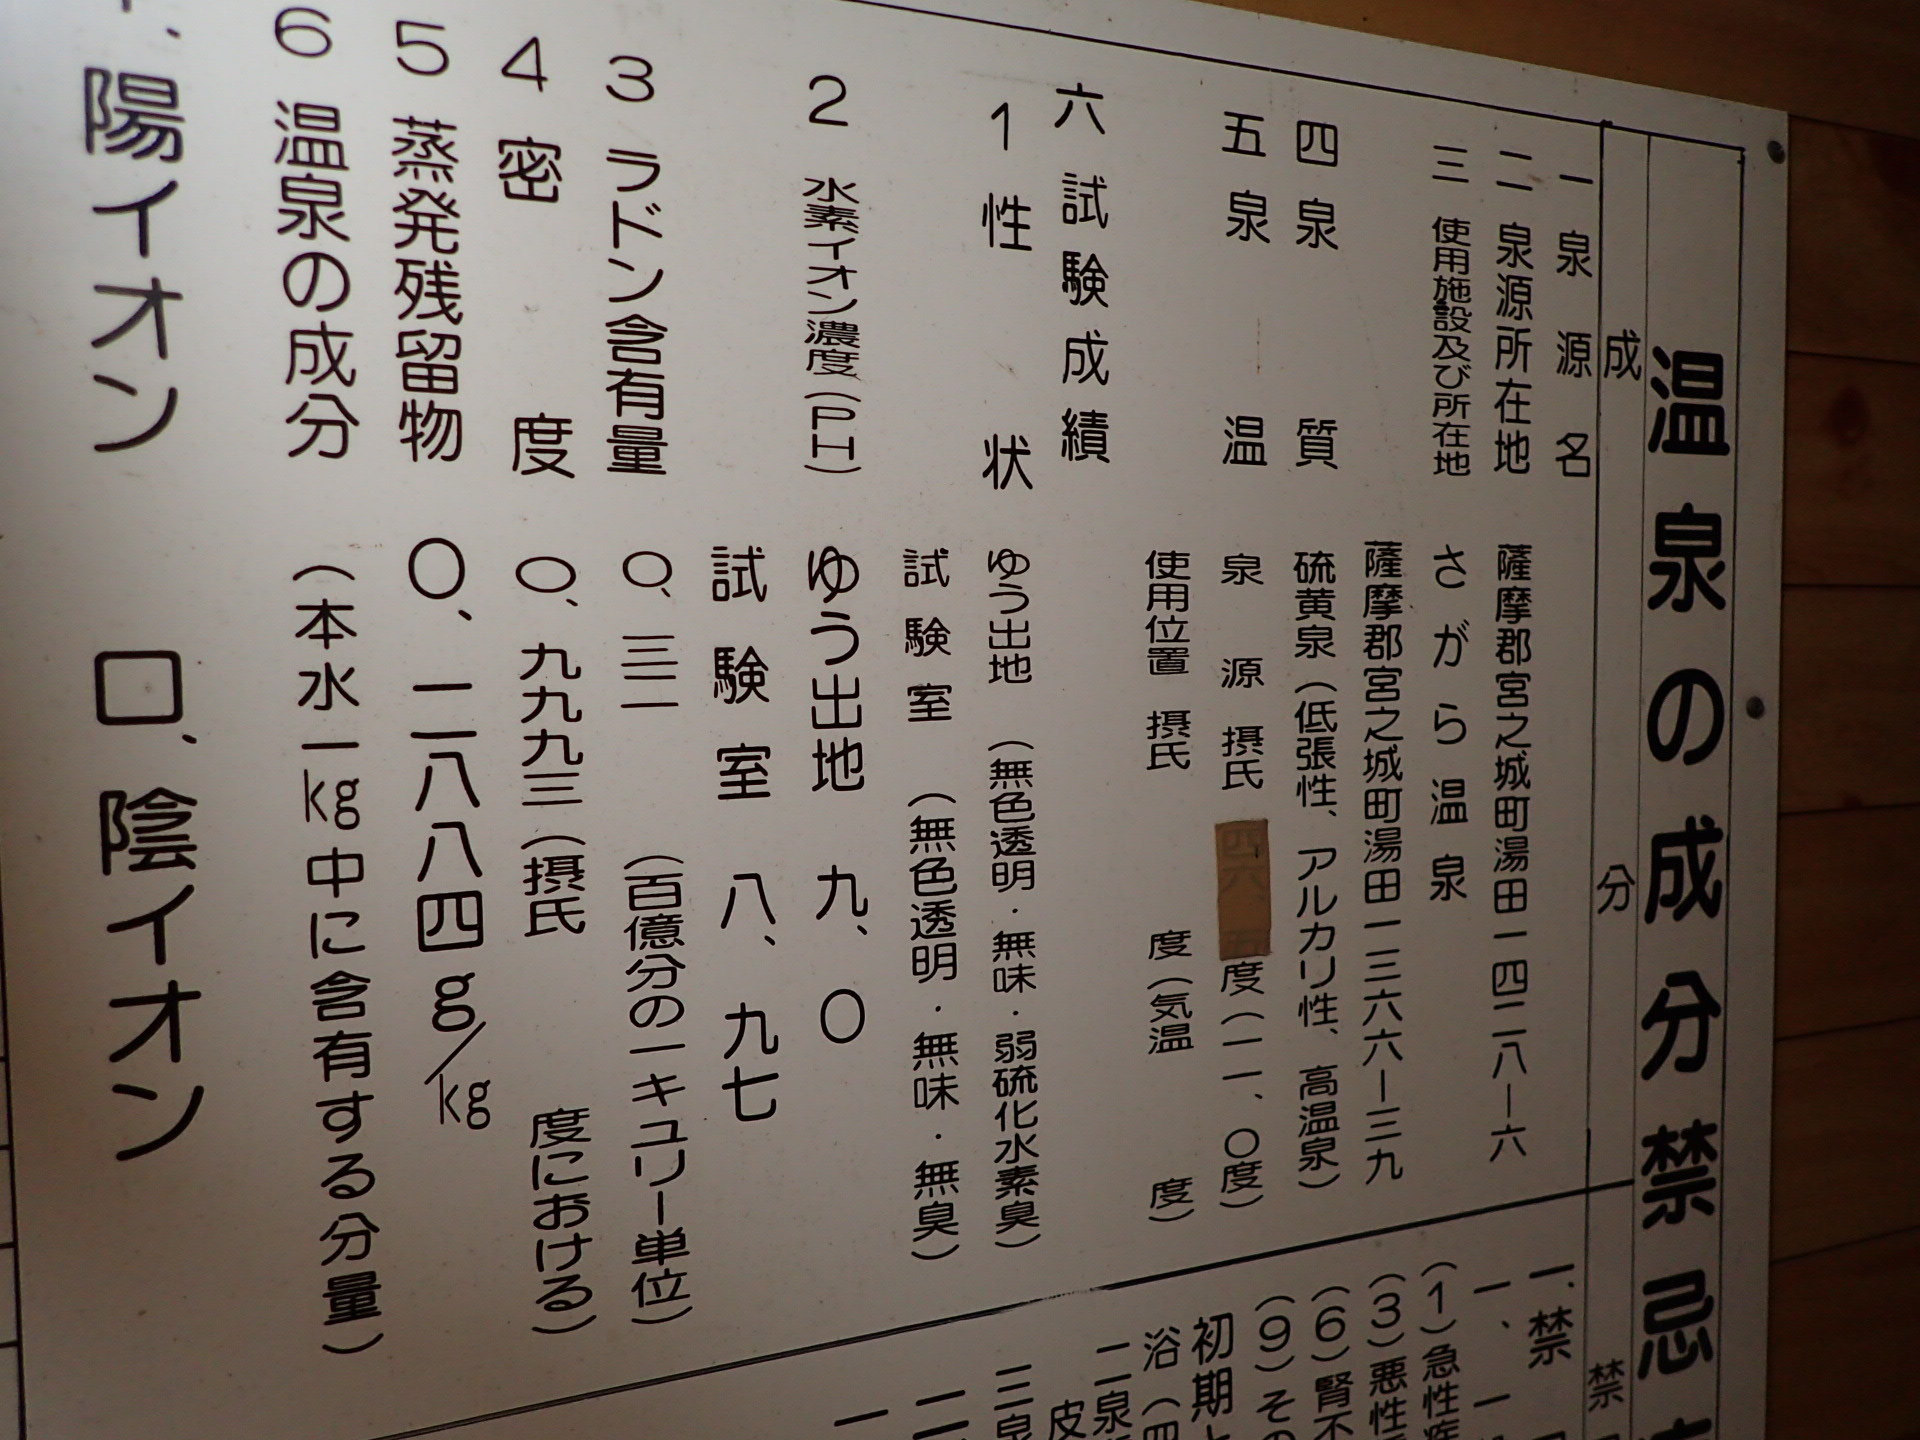 温泉の成分禁忌
成分
一泉源名
二泉源所在地 薩摩郡宮之城町湯田一四二八―六
三 使用施設及び所在地 さがら温泉
薩摩郡宮之城町湯田一三六六―三九
四泉質 硫黄泉(低張性、アルカリ性、高温泉)
五泉温 泉源 摂氏 四六、五度(一一、〇度)
使用位置 摂氏 度(気温 度)
六試験成績
1性状 ゆう出地 (無色透明・無味・弱硫化水素臭)
試験室 (無色透明・無味・無臭)
2 水素イオン濃度(PH) ゆう出地 九、〇
試験室 八、九七
3ラドン含有量 〇、三二 (百億分の一キュリー単位)
4密度 〇、九九九三(摂氏 度における)
5蒸発残留物 〇、二八八四g/kg
6温泉の成分 (本水一kg中に含有する分量)
陽イオン 口、陰イオン
禁
一、禁
一、
(1)急性疾
(3)悪性
(6)腎不
(9)その
初期
浴(四
二泉
皮
三泉